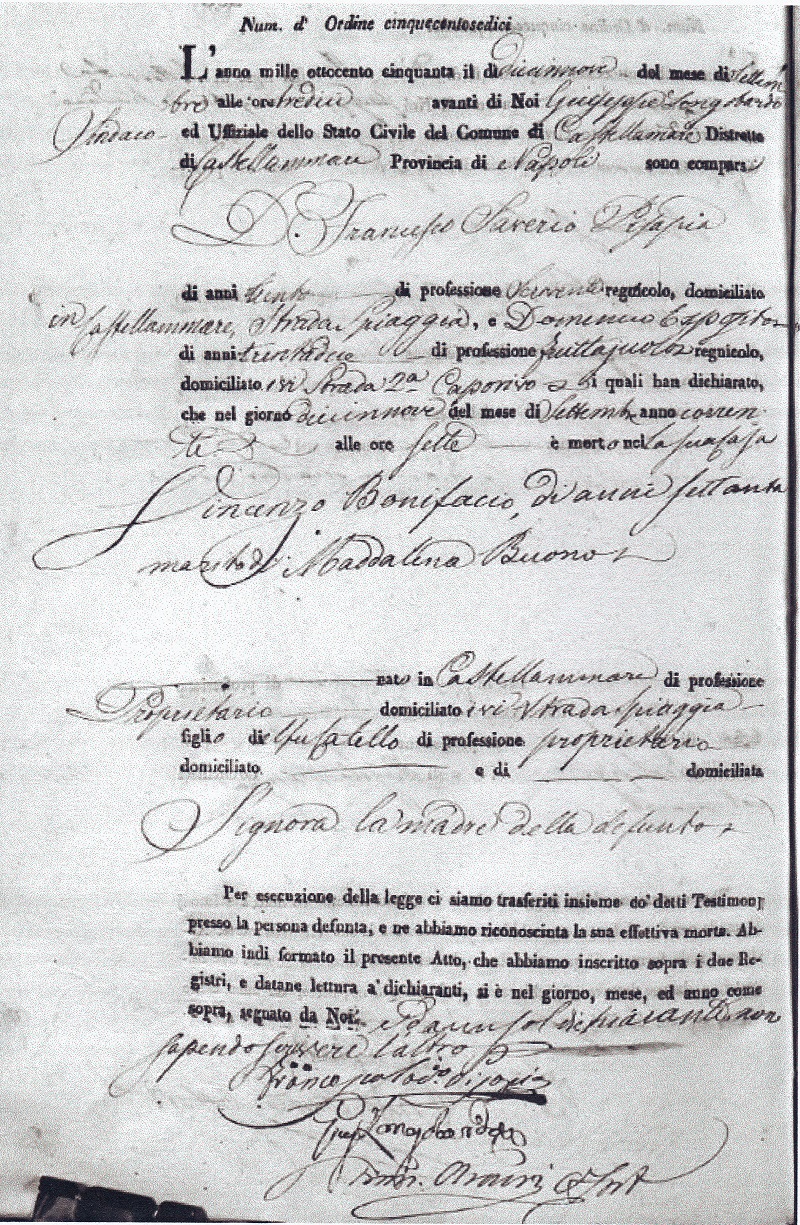 Num. d' Ordine cinquecentosedici
L'anno mille ottocento cinquanta il dì dicinnove del mese di Settem
bre alle ore tredici avanti di Noi Giuseppe Longobardo
Sindaco ed Uffiziale dello Stato Civile del Comune di Castellamare Distretto
di Castellammare Provincia di Napoli sono comparsi
D. Francesco Saverio
di anni trenta di professione regnicolo, domiciliato
in Castellammare, Strada Spiaggia, e Domenico Esposito
di anni di professione fruttajuolo regnicolo,
domiciliato ivi Strada 2a Caporivo i quali han dichiarato,
che nel giorno dicinnove del mese di Settemb. anno corren
te alle ore sette è morto nella sua casa
Vincenzo Bonifacio, di anni settanta
marito di Maddalena Buono
nato in Castellammare di professione
Proprietario domiciliato ivi Strada Spiaggia
figlio di di professione proprietario
domiciliato e di domiciliata
S'ignora la madre della defunto
Per esecuzione della legge ci siamo trasferiti insieme co' detti Testimonj
presso la persona defunta, e ne abbiamo riconosciuta la sua effettiva morte. Ab-
biamo indi formato il presente Atto, che abbiamo inscritto sopra i due Re-
gistri, e datane lettura a' dichiaranti, si è nel giorno, mese, ed anno come
sopra, segnato da Noi. dichiaranti non
sapendo scrivere l'altro
Gius. Longobardo